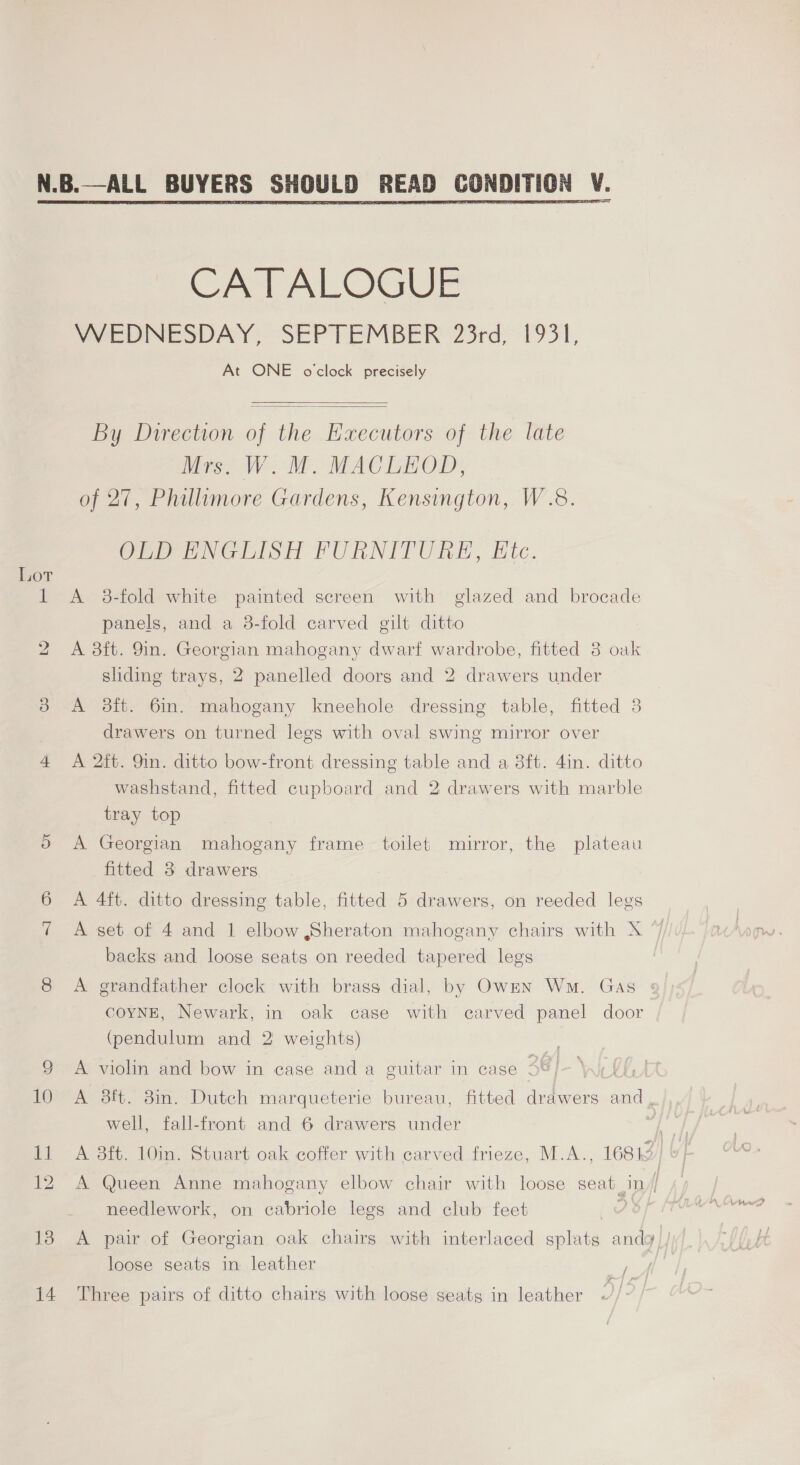 N.B.—ALL BUYERS SHOULD READ CONDITION V.
CATALOGUE
WEDNESDAY, SEPTEMBER 23rd, 1931,
At ONE o'clock precisely
By Direction of the Executors of the late
Mrs. W. M. MACLEOD,
of 27, Phillimore Gardens, Kensington, W.8.
OLD ENGLISH FURNITURE, Etc.
Lot
1 A 3-fold white painted screen with glazed and brocade
panels, and a 3-fold carved gilt ditto
2 A 3ft. 9in. Georgian mahogany dwarf wardrobe, fitted 3 oak
sliding trays, 2 panelled doors and 2 drawers under
3 A 3ft. 6in. mahogany kneehole dressing table, fitted 3
drawers on turned legs with oval swing mirror over
4 A 2ft. 9in. ditto bow-front dressing table and a 3ft. 4in. ditto
washstand, fitted cupboard and 2 drawers with marble
tray top
5 A Georgian mahogany frame toilet mirror, the plateau
fitted 3 drawers
6 A 4ft. ditto dressing table, fitted 5 drawers, on reeded legs
7 A set of 4 and 1 elbow Sheraton mahogany chairs with X
backs and loose seats on reeded tapered legs
8 A grandfather clock with brass dial, by Owen Wm. Gas
coyne, Newark, in oak case with carved panel door
(pendulum and 2 weights)
9 A violin and bow in case and a guitar in case
10 A 3ft. 3in. Dutch marqueterie bureau, fitted drawers and
well, fall-front and 6 drawers under
11 A 3ft. 10in. Stuart oak coffer with carved frieze, M.A., 1681
12 A Queen Anne mahogany elbow chair with loose seat in
needlework, on cabriole legs and club feet
13 A pair of Georgian oak chairs with interlaced splats and
loose seats in leather
14 Three pairs of ditto chairs with loose seats in leather